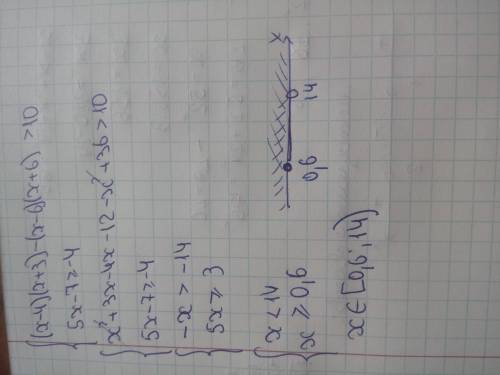 {(x-4)(x+3)-(x-6)(x+6) >10
5x-7≥-4
{x²+3x-4x-12-x²+36>10
5x-7≥-4
{-x>-14
5x≥3
{x<14
x≥0,6
0,6 14 x
x∈[0,6;14)